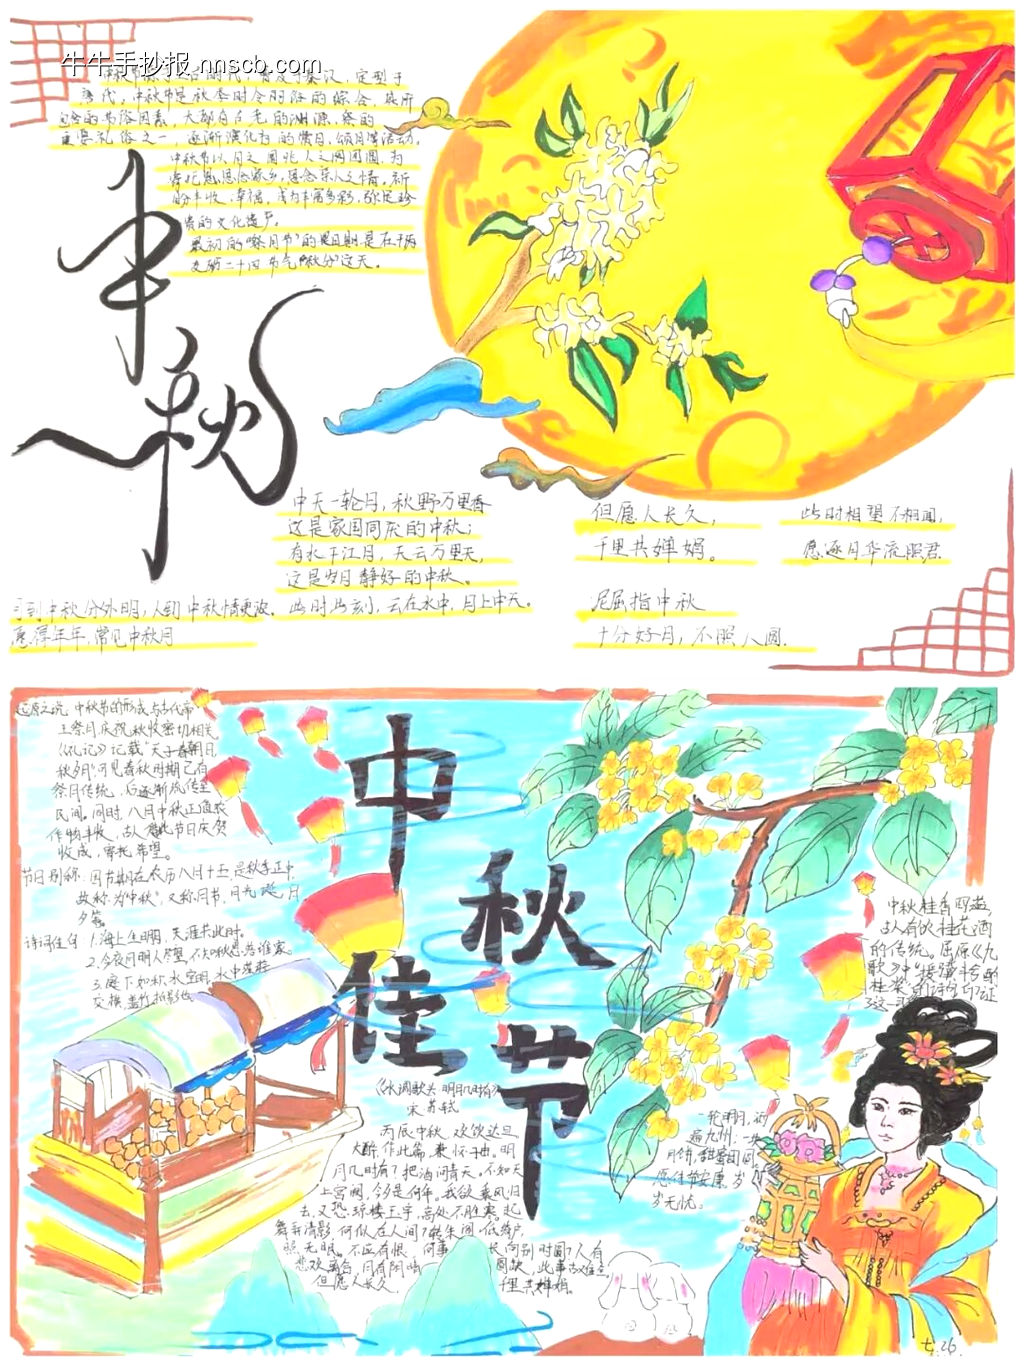 牛牛手抄报.nnscb.com
中秋
唐代,中秋节是秋季时令习俗的综合,其所
包含的节俗因素,大都有古老的渊源。祭的
重要礼俗之一,逐渐演化为的赏月、颂月等活动。
中秋节以月之圆兆人之团圆,为
寄托思念故乡,思念亲人之情。祈
盼丰收、幸福,成为丰富多彩,弥足珍
贵的文化遗产。
最初的“祭月节”的
二十四节气“秋分”这天。
中天一轮月,秋野万里香
这是家国同庆的中秋;
有水千江月,天云万里天,
这是岁月静好的中秋。
此时此刻,云在水中,月上中天。
月到中秋分外明,人到中秋情更浓。
愿得年年,常见中秋月
但愿人长久,
千里共婵娟。
此时相望不相闻,
愿逐月华流照君
屈指中秋
十分好月,不照人圆.
中秋佳节
起源之说:中秋节的形成与古代帝
王祭月庆祝秋收密切相关
《礼记》记载“天子春朝日,
秋夕月”可见春秋时期已有
祭月传统,后逐渐流传至
民间。同时,八月中秋正值农
作物丰收,古人借此节日庆贺
收成,寄托希望。
节日别称:因节期在农历八月十五,是秋季正中,
故称为“中秋”,又称月节,月光诞、月
夕等。
诗词佳句 1.海上生明月,天涯共此时。
2.今夜月明人尽望,不知秋思落谁家。
3.庭下如积水空明,水中藻荇
交横,盖竹柏影也
中秋桂香四溢,
古人有饮桂花酒
的传统。屈原《九
歌》中“援骥斗兮酌
桂浆”的诗句
《水调歌头·明月几时有》
宋 苏轼
丙辰中秋,欢饮达旦
大醉,作此篇,兼怀子由。明
月几时有?把酒问青天。不知天
上宫阙,今夕是何年。我欲乘风归
去,又恐琼楼玉宇,高处不胜寒。起
舞弄清影,何似在人间?转朱阁,低绮户,
照无眠。不应有恨,何事长向别时圆?人有
悲欢离合,月有阴晴圆缺,此事古难全
但愿人长久,千里共婵娟。
一轮明月,
遍九州,一块
月饼,甜蜜团圆,
愿佳节安康,岁
岁无忧。